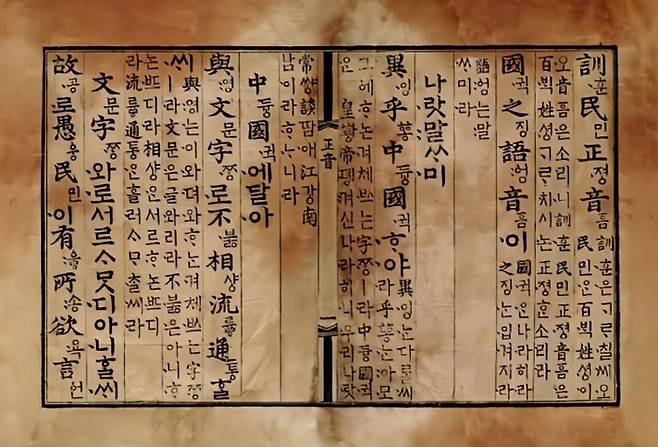 訓훈民민正졍音흠 訓훈은ᄀᆞᄅᆞ칠씨오
民민은百ᄇᆡᆨ姓셩이
오音흠은소리니訓훈民민正졍音흠은
百ᄇᆡᆨ姓셩ᄀᆞᄅᆞ치시논正졍ᄒᆞᆫ소리라
國귁之징語엉音흠이 國귁은나라히라
之징는입겨지라
語엉는말
ᄊᆞ미라
나랏말ᄊᆞ미
異잉乎ᅘᅩᆼ中듕國귁ᄒᆞ야 異잉는다ᄅᆞᆯ씨
라乎ᅘᅩᆼ는아모
그ᅌᅦᄒᆞ논겨체ᄡᅳ는字ᄍᆞᆼㅣ라中듕國귁
은 皇황帝뎽겨신나라히니우리나랏
正音
常썅談땀애江강南
남이라ᄒᆞᄂᆞ니라
中듕國귁에달아
與영文문字ᄍᆞᆼ로不붏相샹流륳通통ᄒᆞᆯ
ᄊᆡ 與영는이와뎌와ᄒᆞ논겨체ᄡᅳ는字ᄍᆞᆼ
ㅣ라文문은글와리라不붏은아니ᄒᆞ
논ᄠᅳ디라相샹ᄋᆞᆫ서르ᄒᆞ논ᄠᅳ디
라流륳通통ᄋᆞᆫ흘러ᄉᆞᄆᆞᄎᆞᆯ씨라
文문字ᄍᆞᆼ와로서르ᄉᆞᄆᆞᆺ디아니ᄒᆞᆯᄊᆡ
故공로愚웅民민이有ᅌᅮᇢ所송欲욕言언